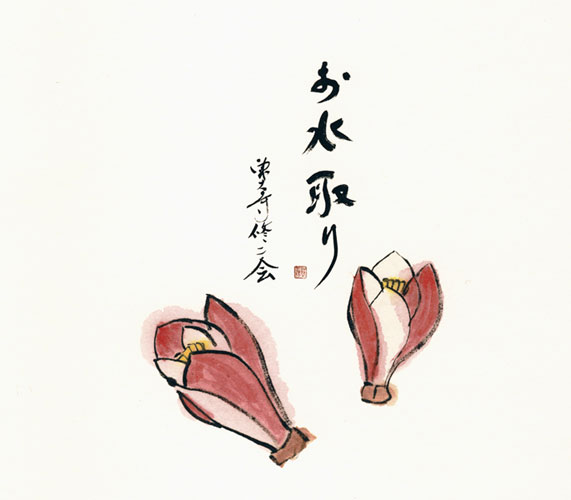 お水取り
東大寺修二会